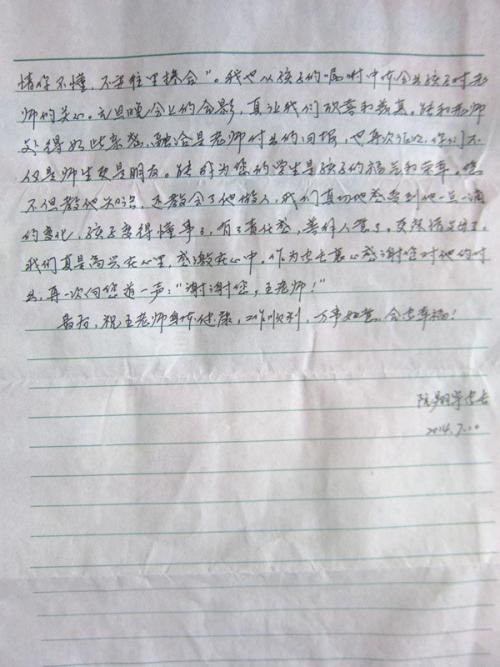 情你不懂，不要往里掺合”。我也从孩子的一言一行中体会出孩子对老
师的关心。元旦晚会上的合影，真让我们欣喜和羡慕。能和老师
处得如此亲密、融洽是老师付出的回报，也再次证明，你们不
仅是师生更是朋友。能成为您的学生是孩子的福气和荣幸。您
不但教他知识，还教会了他做人，我们真切地感受到他一点一滴
的变化，孩子变得懂事了，有了责任感，善解人意了。
我们真是高兴在心里，感激在心中。作为家长衷心感谢您对他的付
出，再一次向您道一声：“谢谢您，王老师！”
最后，祝王老师身体健康，工作顺利，万事如意，合家幸福！
家长
2014.7.10